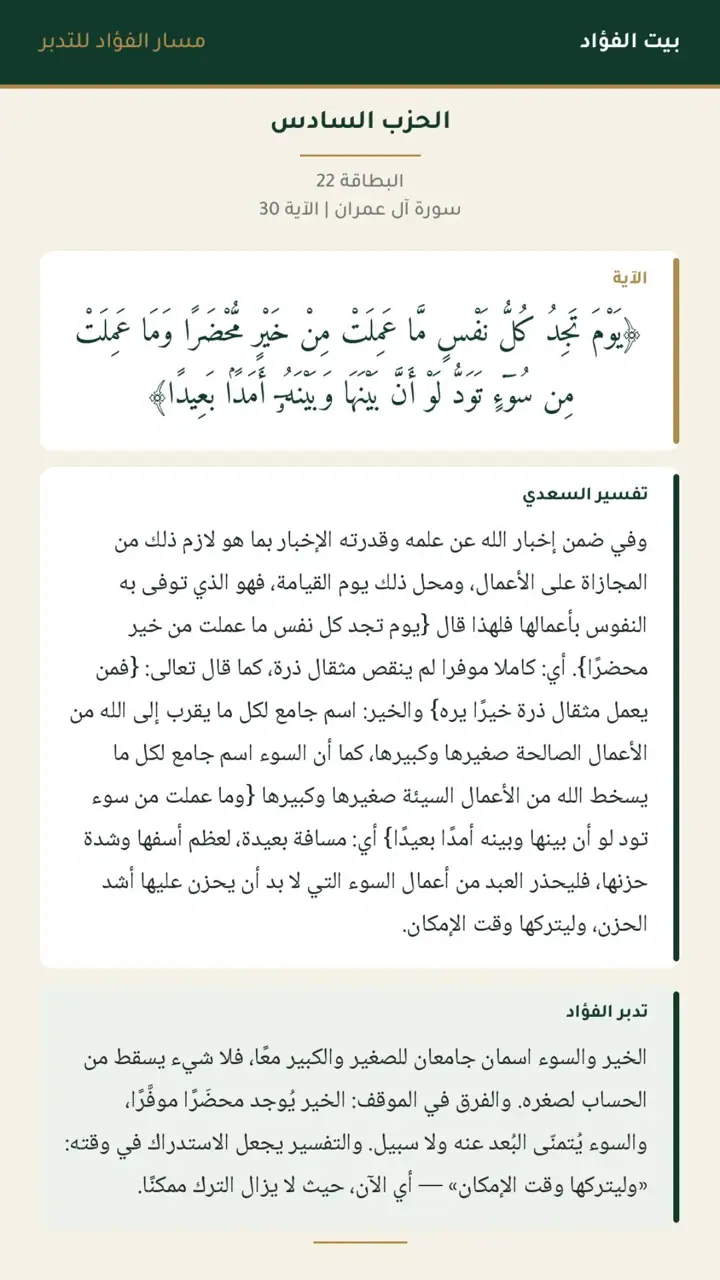 بيت الفؤاد
مسار الفؤاد للتدبر
الحزب السادس
البطاقة 22
سورة آل عمران | الآية 30
الآية
﴿يَوْمَ تَجِدُ كُلُّ نَفْسٍ مَّا عَمِلَتْ مِنْ خَيْرٍ مُّحْضَرًا وَمَا عَمِلَتْ
مِن سُوٓءٍ تَوَدُّ لَوْ أَنَّ بَيْنَهَا وَبَيْنَهُۥٓ أَمَدًۢا بَعِيدًا﴾
تفسير السعدي
وفي ضمن إخبار الله عن علمه وقدرته الإخبار بما هو لازم ذلك من
المجازاة على الأعمال، ومحل ذلك يوم القيامة، فهو الذي توفى به
النفوس بأعمالها فلهذا قال {يوم تجد كل نفس ما عملت من خير
محضرًا}. أي: كاملا موفرا لم ينقص مثقال ذرة، كما قال تعالى: {فمن
يعمل مثقال ذرة خيرًا يره} والخير: اسم جامع لكل ما يقرب إلى الله من
الأعمال الصالحة صغيرها وكبيرها، كما أن السوء اسم جامع لكل ما
يسخط الله من الأعمال السيئة صغيرها وكبيرها {وما عملت من سوء
تود لو أن بينها وبينه أمدًا بعيدًا} أي: مسافة بعيدة، لعظم أسفها وشدة
حزنها، فليحذر العبد من أعمال السوء التي لا بد أن يحزن عليها أشد
الحزن، وليتركها وقت الإمكان.
تدبر الفؤاد
الخير والسوء اسمان جامعان للصغير والكبير معًا، فلا شيء يسقط من
الحساب لصغره. والفرق في الموقف: الخير يُوجد محضَرًا موفَّرًا،
والسوء يُتمنّى البُعد عنه ولا سبيل. والتفسير يجعل الاستدراك في وقته:
«وليتركها وقت الإمكان» — أي الآن، حيث لا يزال الترك ممكنًا.